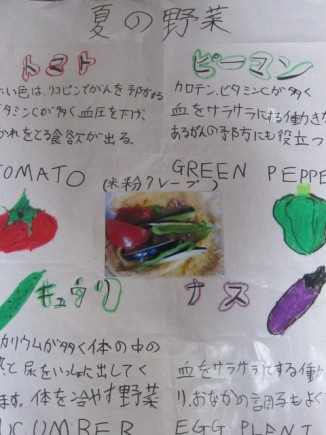 夏の野菜
トミト
い色は、リコピンでがんを予防する
タミンCが多く血圧を下げ、
かれをとる食欲が出る。
TOMATO
ピーマン
カロテン、ビタミンCが多く
血をサラサラにする働きが
あるがんの予防にも役立つ
GREEN PEPPE
(米粉クレープ)
キュウリ
カリウムが多く体の中の
熱と尿をいっしょに出してく
ます。体を冷やす野菜
UCUMBER
ナス
血をサラサラにする働
り、おなかの調子もよく
EGG PLANT